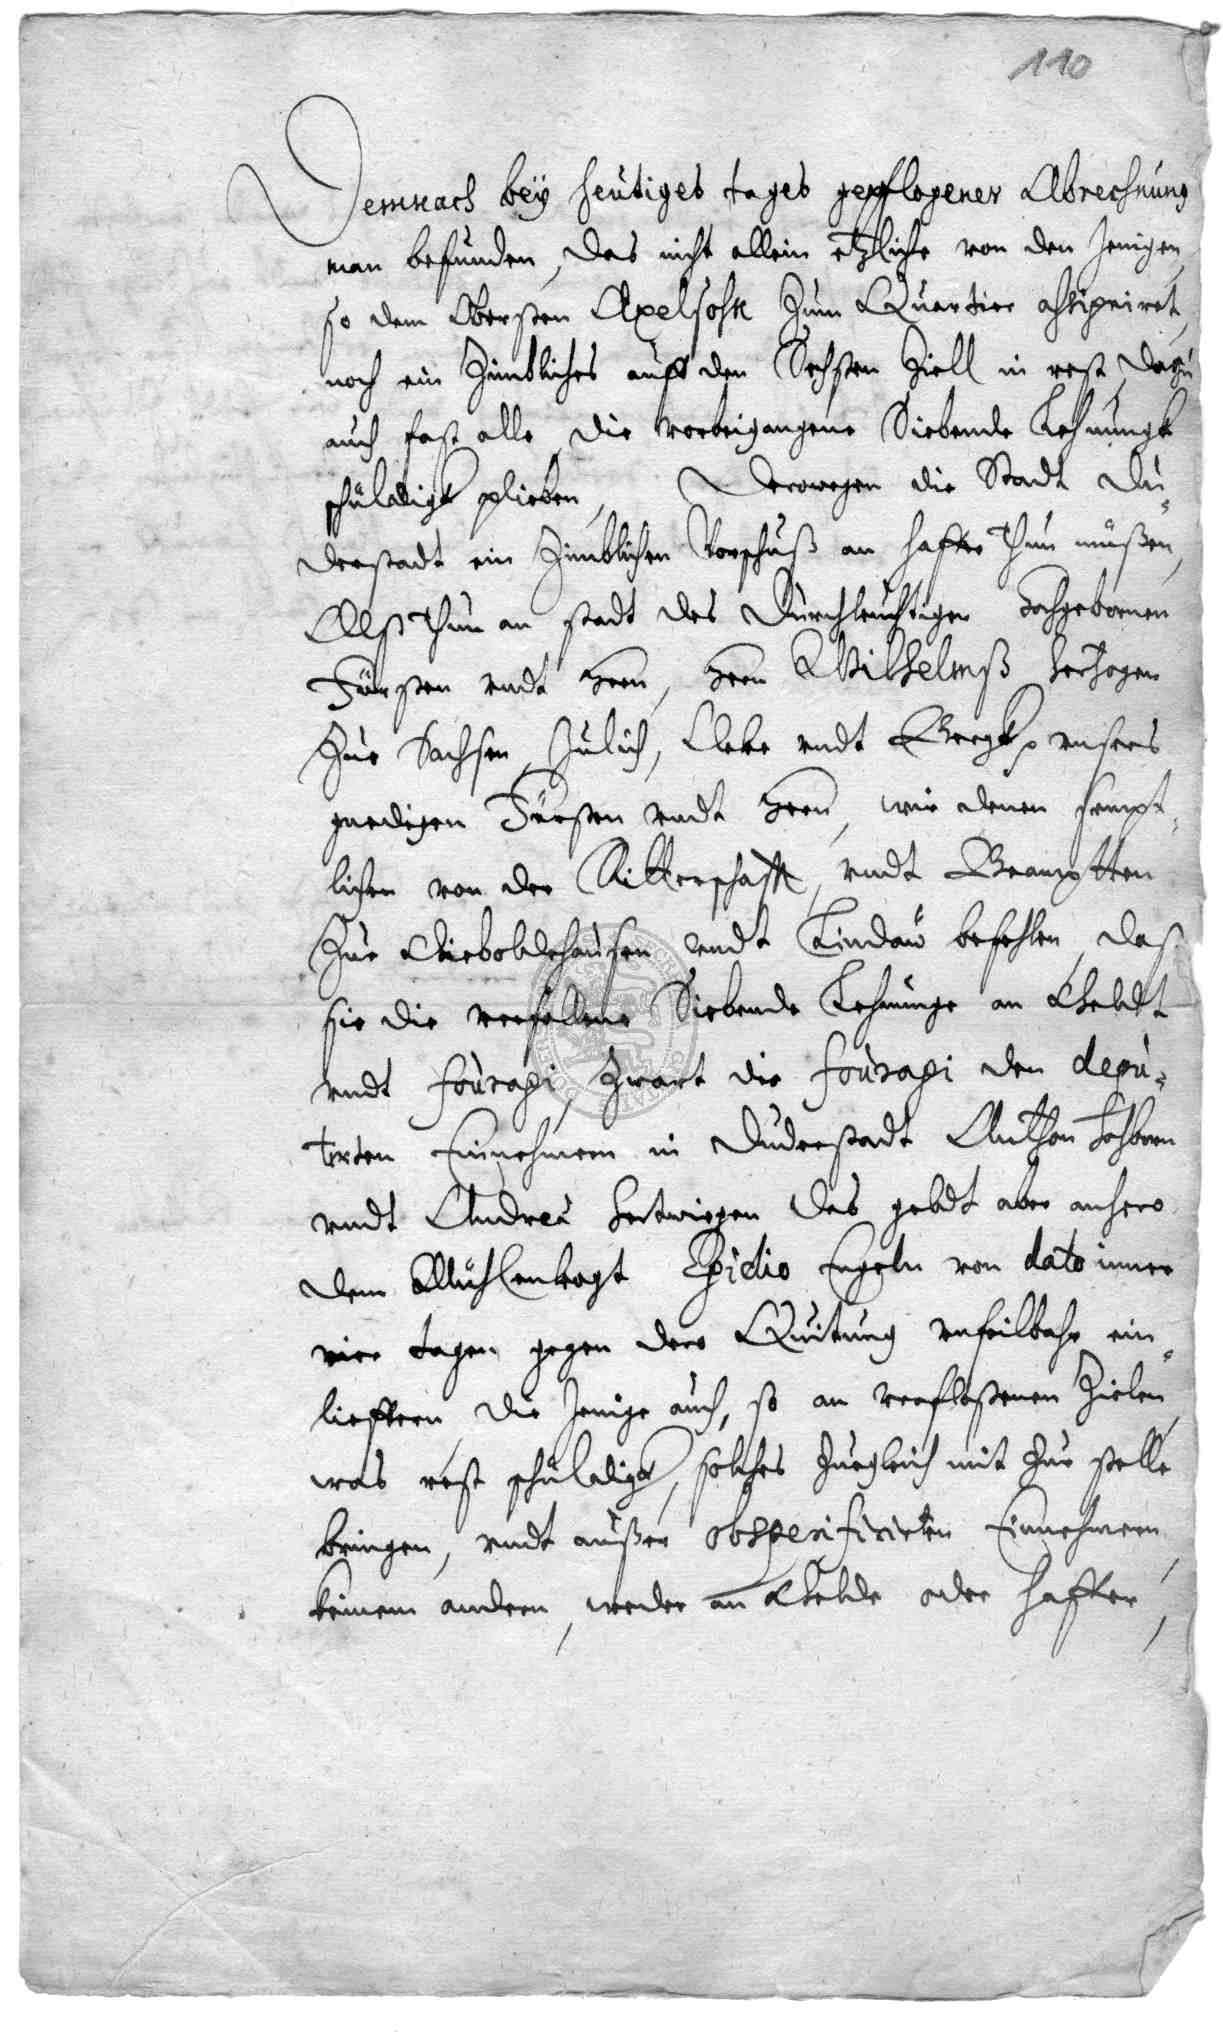 110
Demnach beÿ heutiges tages gepflogener Abrechnung
man befunden, das nicht allein etzliche von den Jenigen,
so dem Obersten Axelsohn zum Quartier assigniret,
noch ein Zimbliches auff den Sechsten Ziell in rest, dazu
auch fast alle, die vorbeigangene Siebende Lehnungk
schuldigk plieben, Derowegen die Stadt Du-
derstadt ein Zimblichen Vorschuß an haffer thun müßen,
Alß thun an stadt des Durchleuchtigen Hochgebornen
Fürsten undt Hern, Hern Wilhelmß Hertzogen
Zue Sachsen, Julich, Cleve undt Bergk, unsers
gnedigen Fürsten undt Hern, wir denen sempt-
lichen von der Ritterschafft, undt Beampten
Zue Gieboldehausen undt Lindaw befehlen, das
sie die verfallene Siebende Lehnunge an Gheldt
undt fouragi, Zwart die fouragi den depu-
tirten Einnehmern in Duderstadt Anthon
undt Andrea Hertwigen das geldt aber anhero
dem Mühlenvogt Egidio Engeln von dato inner
vier tagen gegen dero Quitung unfeilbahr ein-
lieffern, die Jenige auch, so an verfloßenen Zielen,
was rest schuldigk, solches Zuegleich mit Zur stelle
bringen, undt außer obspecificirten Einnehmern
keinem andern, weder an Ghelde oder haffer,